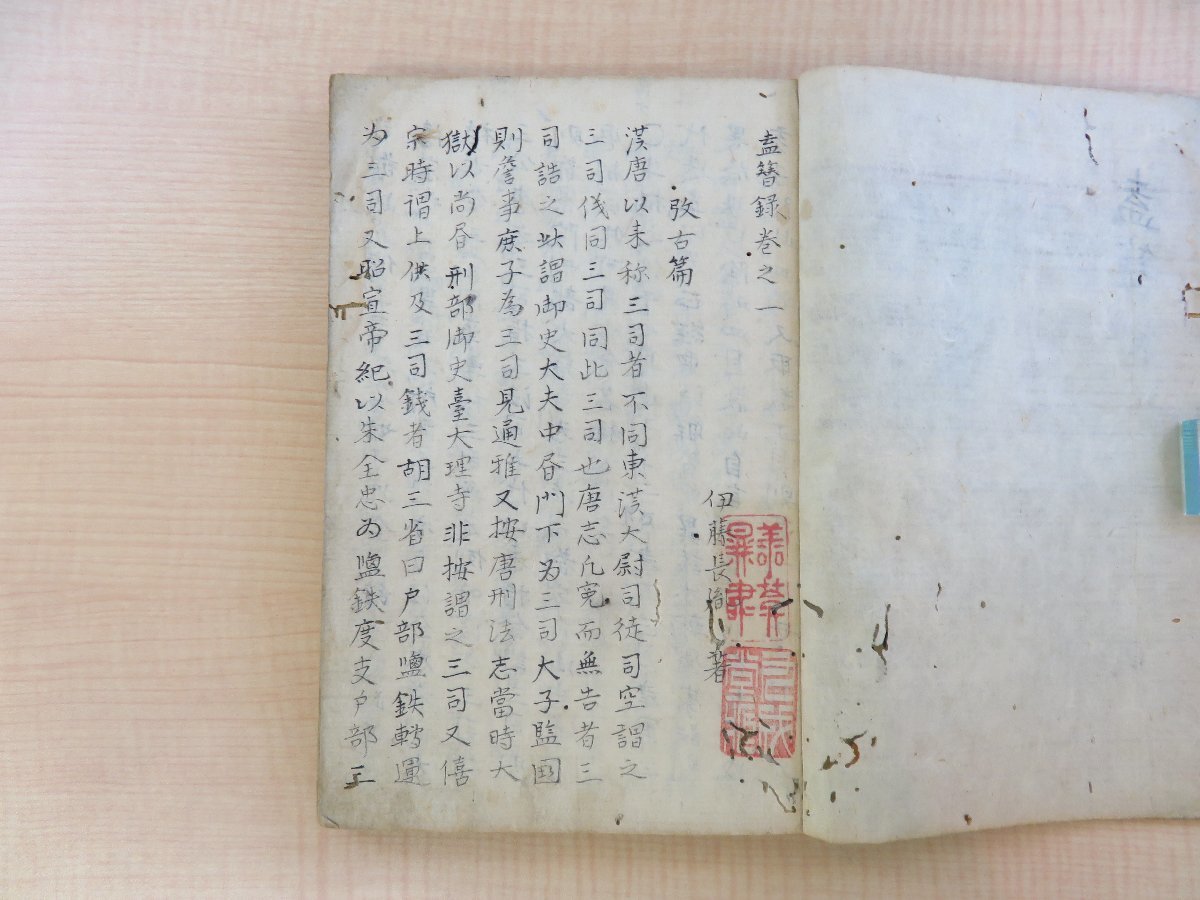 盍簪録巻之一
伊藤長胤著
攷古篇
漢唐以来称三司者不同東漢大尉司徒司空謂之
三司儀同三司同此三司也唐志凡寃而無告者三
司詰之此謂御史大夫中书門下为三司大子監国
則詹事庶子為三司見通雅又按唐刑法志當時大
獄以尚书刑部御史臺大理寺非按謂之三司又僖
宗時謂上供及三司銭者胡三省曰户部鹽鉄轉運
为三司又昭宣帝紀以朱全忠为鹽鉄度支户部三